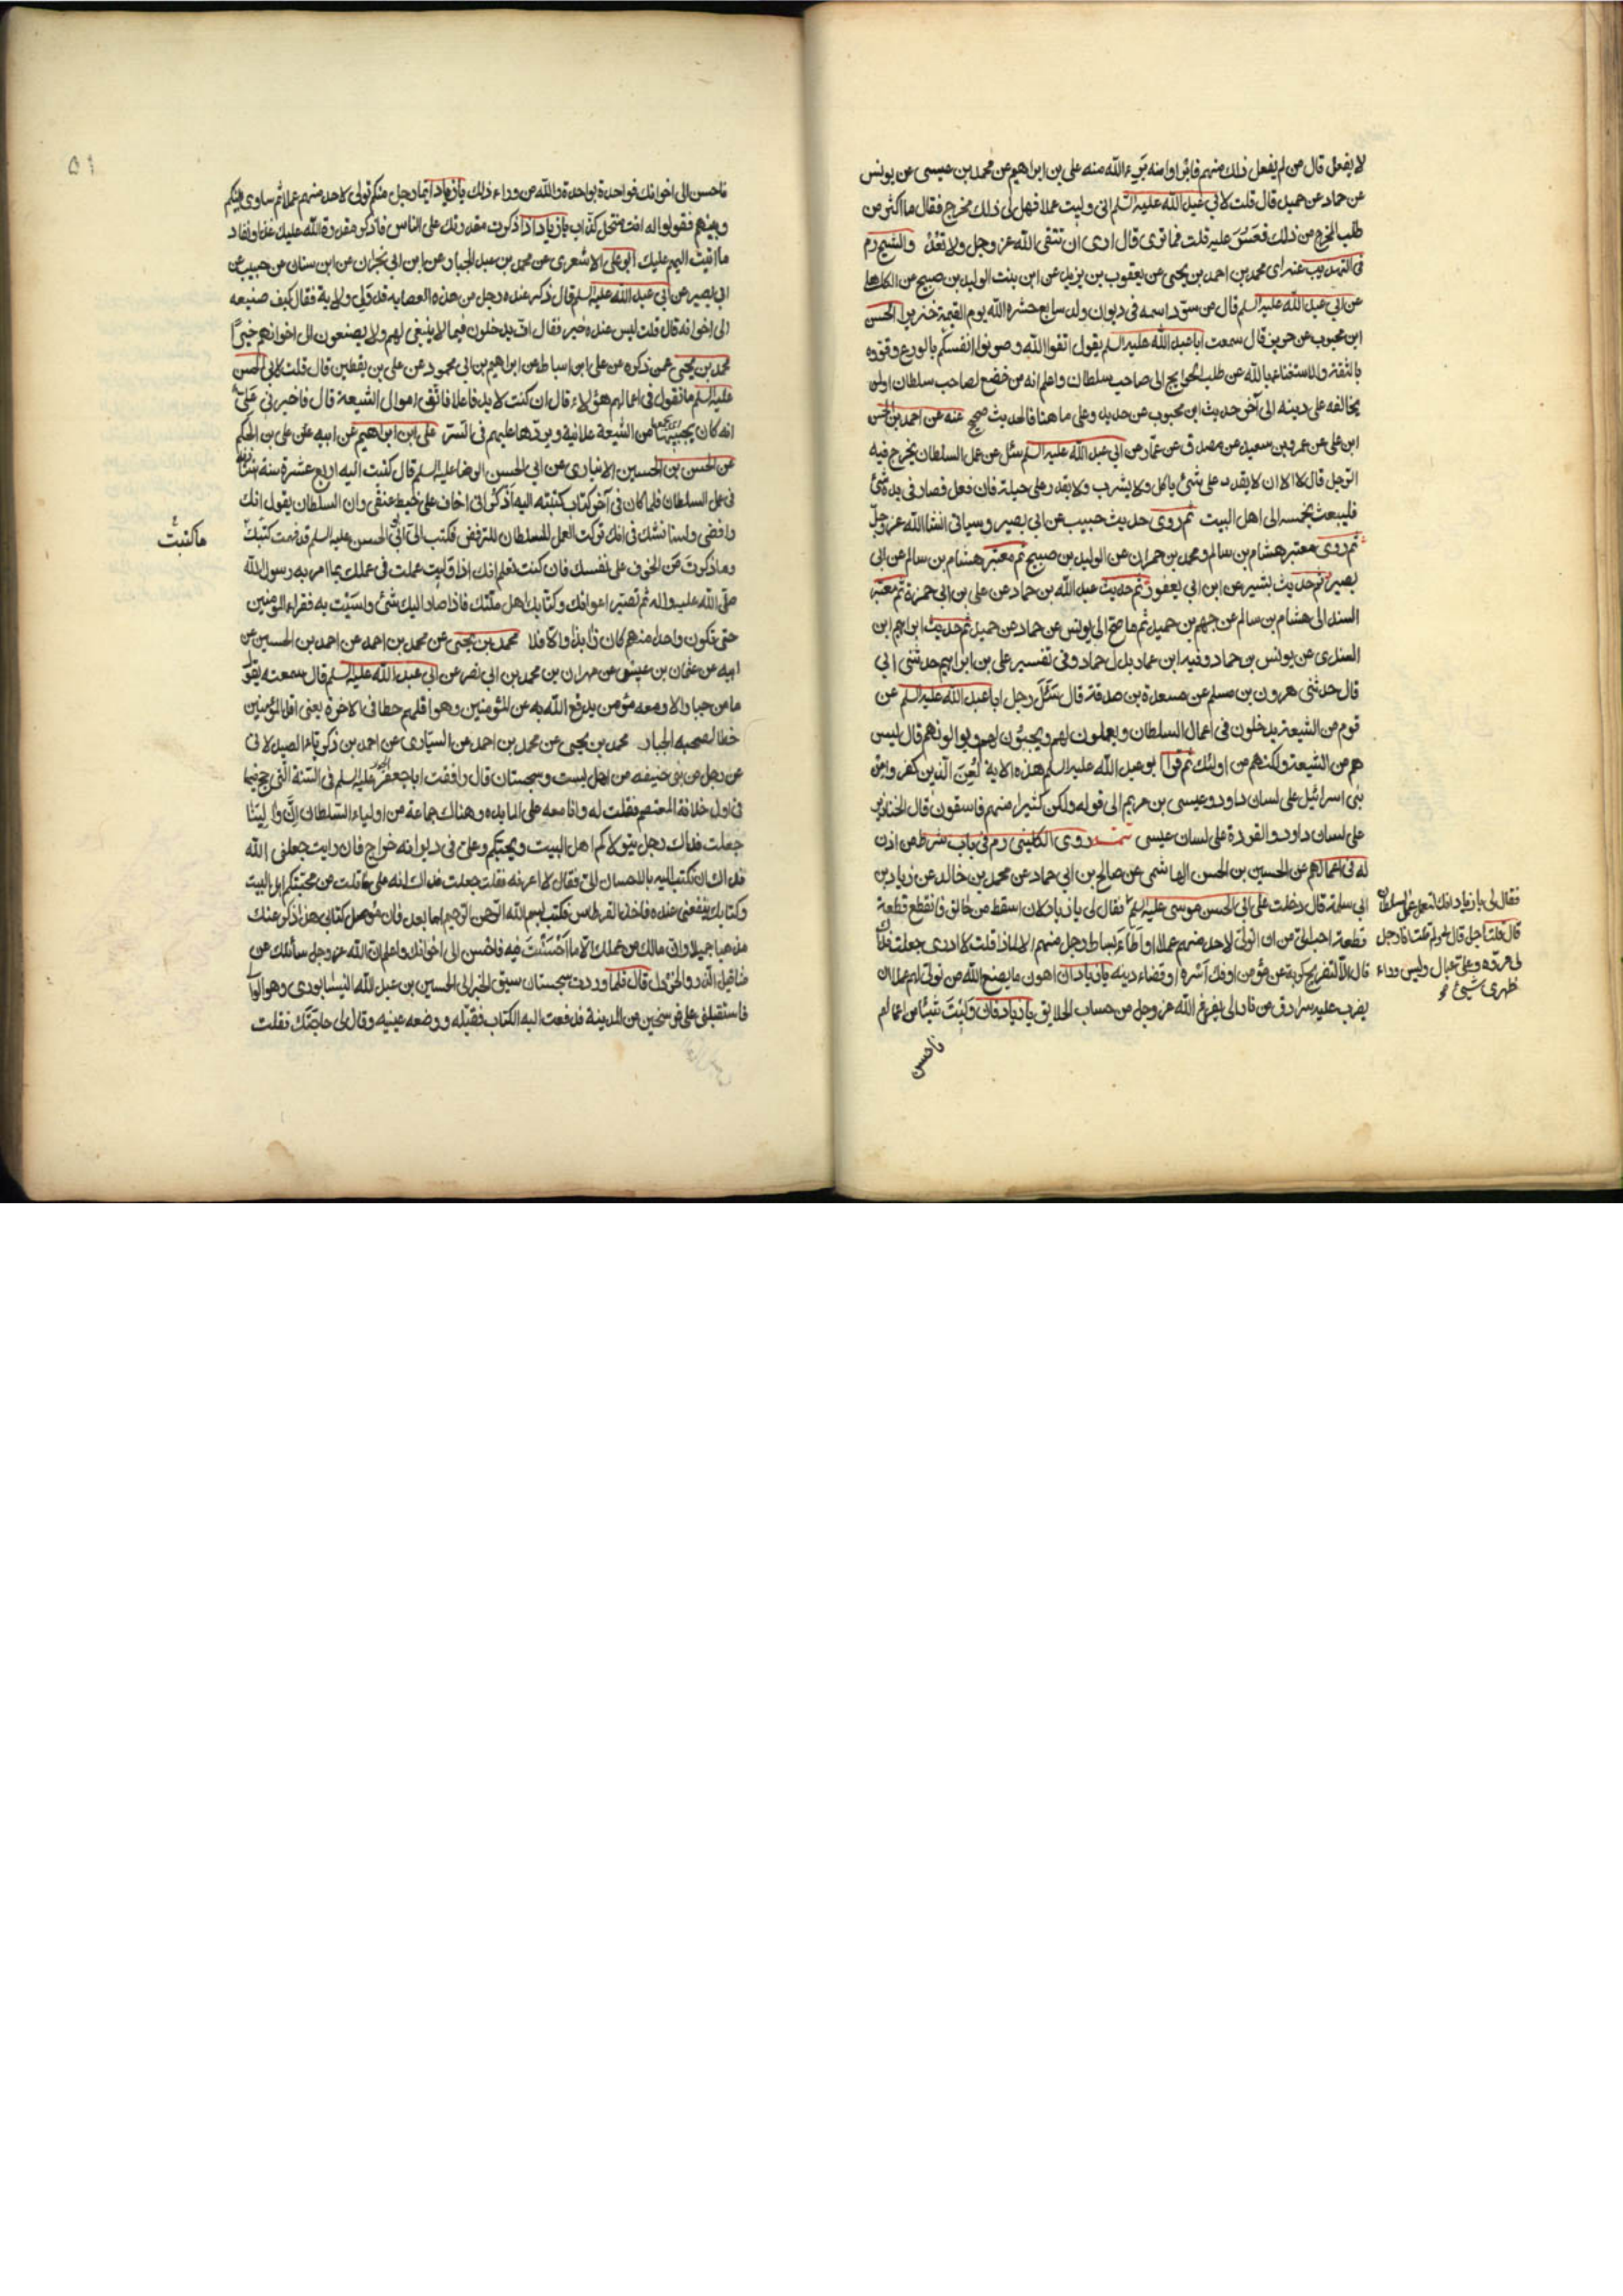 لا يفعل قال من لم يفعل ذلك منهم فابرأوا منه برىء الله منه على بن ابراهيم عن محمد بن عيسى عن يونس
عن حماد عن حميد قال قلت لابى عبد الله عليه السلم انى وليت عملا فهل لى ذلك مخرج فقال ما اكثر من
طلب المخرج من ذلك فعسر عليه قلت فما ترى قال ارى ان تتقى الله عز وجل ولا تعد والشيخ رم
فى التهذيب عنه اى محمد بن احمد بن يحيى عن يعقوب بن يزيد عن ابن بنت الوليد بن صبيح عن الكاهلى
عن ابى عبد الله عليه السلم قال من سود اسمه فى ديوان ولد سابع حشره الله يوم القيمة خنزيرا الحسن
ابن محبوب عن حريز قال سمعت ابا عبد الله عليه السلم يقول اتقوا الله وصونوا انفسكم بالورع وقووه
بالثقة والاستغناء بالله عن طلب الحوايج الى صاحب سلطان واعلم انه من خضع لصاحب سلطان او لمن
يخالفه على دينه الى آخر حديث ابن محبوب عن حديد وعلى ما هنا فالحديث صحيح عنه عن احمد بن الحسن
ابن على عن عمرو بن سعيد عن مصدق عن عمار عن ابى عبد الله عليه السلم سئل عن عمل السلطان يخرج فيه
الرجل قال لا الا ان لا يقدر على شئ ياكل ولا يشرب ولا يقدر على حيلة فان فعل فصار فى يده شئ
فليبعث بخمسه الى اهل البيت ثم روى حديث حبيب عن ابى بصير وسياتى انشا الله عز وجل
ثم روى معتبر هشام بن سالم ومحمد بن حمران عن الوليد بن صبيح ثم معتبر هشام بن سالم عن ابى
بصير ثم حديث بشير عن ابن ابى يعفور ثم حديث عبد الله بن حماد عن على بن ابى حمزة ثم معتبر
السند الى هشام بن سالم عن جهم بن حميد ثم ما صح الى يونس عن حماد عن حميد ثم حديث ابراهيم ابن
السندى عن يونس بن حماد وفيه ابن عمار بدل حماد وفى تفسير على بن ابراهيم حدثنى ابى
قال حدثنى هرون بن مسلم عن مسعدة بن صدقة قال سئل رجل ابا عبد الله عليه السلم عن
قوم من الشيعة يدخلون فى اعمال السلطان ويعملون لهم ويجبون لهم ويوالونهم قال ليس
هم من الشيعة ولكنهم من اولئك ثم قرا ابو عبد الله عليه السلم هذه الاية لعن الذين كفروا من
بنى اسرائيل على لسان داود وعيسى بن مريم الى قوله ولكن كثيرا منهم فاسقون قال الخنازير
على لسان داود والقردة على لسان عيسى تتمة روى الكلينى رم فى باب شرط من اذن
له فى اعمالهم عن الحسين بن الحسن الهاشمى عن صالح بن ابى حماد عن محمد بن خالد عن زياد بن
ابى سلمة قال دخلت على ابى الحسن موسى عليه السلم فقال لى يا زياد لان اسقط من حالق فاتقطع قطعة
قطعة احب الى من ان اتولى لاحد منهم عملا او اطأ بساط رجل منهم الا لماذا قلت لا ادرى جعلت فداك
قال الا لتفريج كربة عن مؤمن او فك اسره او قضاء دينه يا زياد ان اهون ما يصنع الله من تولى لهم عملا ان
يضرب عليه سرادق من نار الى يفرغ الله عز وجل من حساب الخلايق يا زياد فان وليت شيئا من اعمالهم
فاحسن
فقال لى يا زياد انك لتعمل عمل السلطان
قال قلت اجل قال لى ولم قلت انا رجل
لى مروة وعلى عيال وليس وراء
ظهرى شئ
٥١
فاحسن الى اخوانك فواحدة بواحدة والله من وراء ذلك يا زياد ايما رجل منكم تولى لاحد منهم عملا ثم ساوى بينكم
وبينهم فقولوا له انت منتحل كذاب يا زياد اذا ذكرت مقدرتك على الناس فاذكر مقدرة الله عليك غدا ونفاد
ما اتيت اليهم عليك ابو على الاشعرى عن محمد بن عبد الجبار عن ابن ابى نجران عن ابن سنان عن حبيب عن
ابى بصير عن ابى عبد الله عليه السلم قال ذكر عنده رجل من هذه العصابه قد ولى ولاية فقال كيف صنيعه
الى اخوانه قال قلت ليس عنده خير فقال اف يدخلون فيما لا ينبغى لهم ولا يصنعون الى اخوانهم خيرا
محمد بن يحيى عمن ذكره عن على ابن اسباط عن ابراهيم بن ابى محمود عن على بن يقطين قال قلت لابى الحسن
عليه السلم ما تقول فى اعمال هؤلاء قال ان كنت لا بد فاعلا فاتق اموال الشيعة قال فاخبرنى على
انه كان يجبيها من الشيعة علانية ويردها عليهم فى السر على ابن ابراهيم عن ابيه عن على بن الحكم
عن الحسن بن الحسين الانبارى عن ابى الحسن الرضا عليه السلم قال كتبت اليه اربع عشرة سنة استاذنه
فى عمل السلطان فلما كان فى آخر كتاب كتبته اليه اذكر انى اخاف على خيط عنقى وان السلطان يقول انك
رافضى ولسنا نشك فى انك تركت العمل للسلطان للترفض فكتب الى ابو الحسن عليه السلم قد فهمت كتبك
ما كتبت
وما ذكرت من الخوف على نفسك فان كنت تعلم انك اذا وليت عملت فى عملك بما امر به رسول الله
صلى الله عليه واله ثم تصير اعوانك وكتابك اهل ملتك فاذا صار اليك شئ واسيت به فقراء المؤمنين
حتى تكون واحدا منهم كان ذا بذا والا فلا محمد بن يحيى عن محمد بن احمد عن احمد بن الحسين عن
ابيه عن عثمان بن عيسى عن مهران بن محمد بن ابى نصر عن ابى عبد الله عليه السلم قال سمعته يقول
ما من جبار الا ومعه مؤمن يدفع الله به عن المؤمنين وهو اقلهم حظا فى الاخرة يعنى اقل المؤمنين
حظا لصحبة الجبار محمد بن يحيى عن محمد بن احمد عن السيارى عن احمد بن زكريا الصيدلانى
عن رجل من بنى حنيفه من اهل بست وسجستان قال رافقت ابا جعفر عليه السلم فى السنة التى حج فيها
فى اول خلافة المعتصم فقلت له وانا معه على المايده وهناك جماعة من اولياء السلطان ان والينا
جعلت فداك رجل يتولاكم اهل البيت ويحبكم وعلى فى ديوانه خراج فان رايت جعلنى الله
فداك ان تكتب اليه بالاحسان الى فقال لا اعرفه فقلت جعلت فداك انه على ما قلت من محبتكم اهل البيت
وكتابك ينفعنى عنده فاخذ القرطاس فكتب بسم الله الرحمن الرحيم اما بعد فان موصل كتابى هذا ذكر عنك
مذهبا جميلا وان مالك من عملك الا ما احسنت فيه فاحسن الى اخوانك واعلم ان الله عز وجل سائلك عن
مثاقيل الذر والخردل قال فلما وردت سجستان سبق الخبر الى الحسين بن عبد الله النيسابورى وهو الوالى
فاستقبلنى على فرسخين من المدينة فدفعت اليه الكتاب فقبله ووضعه عينيه وقال لى حاجتك فقلت